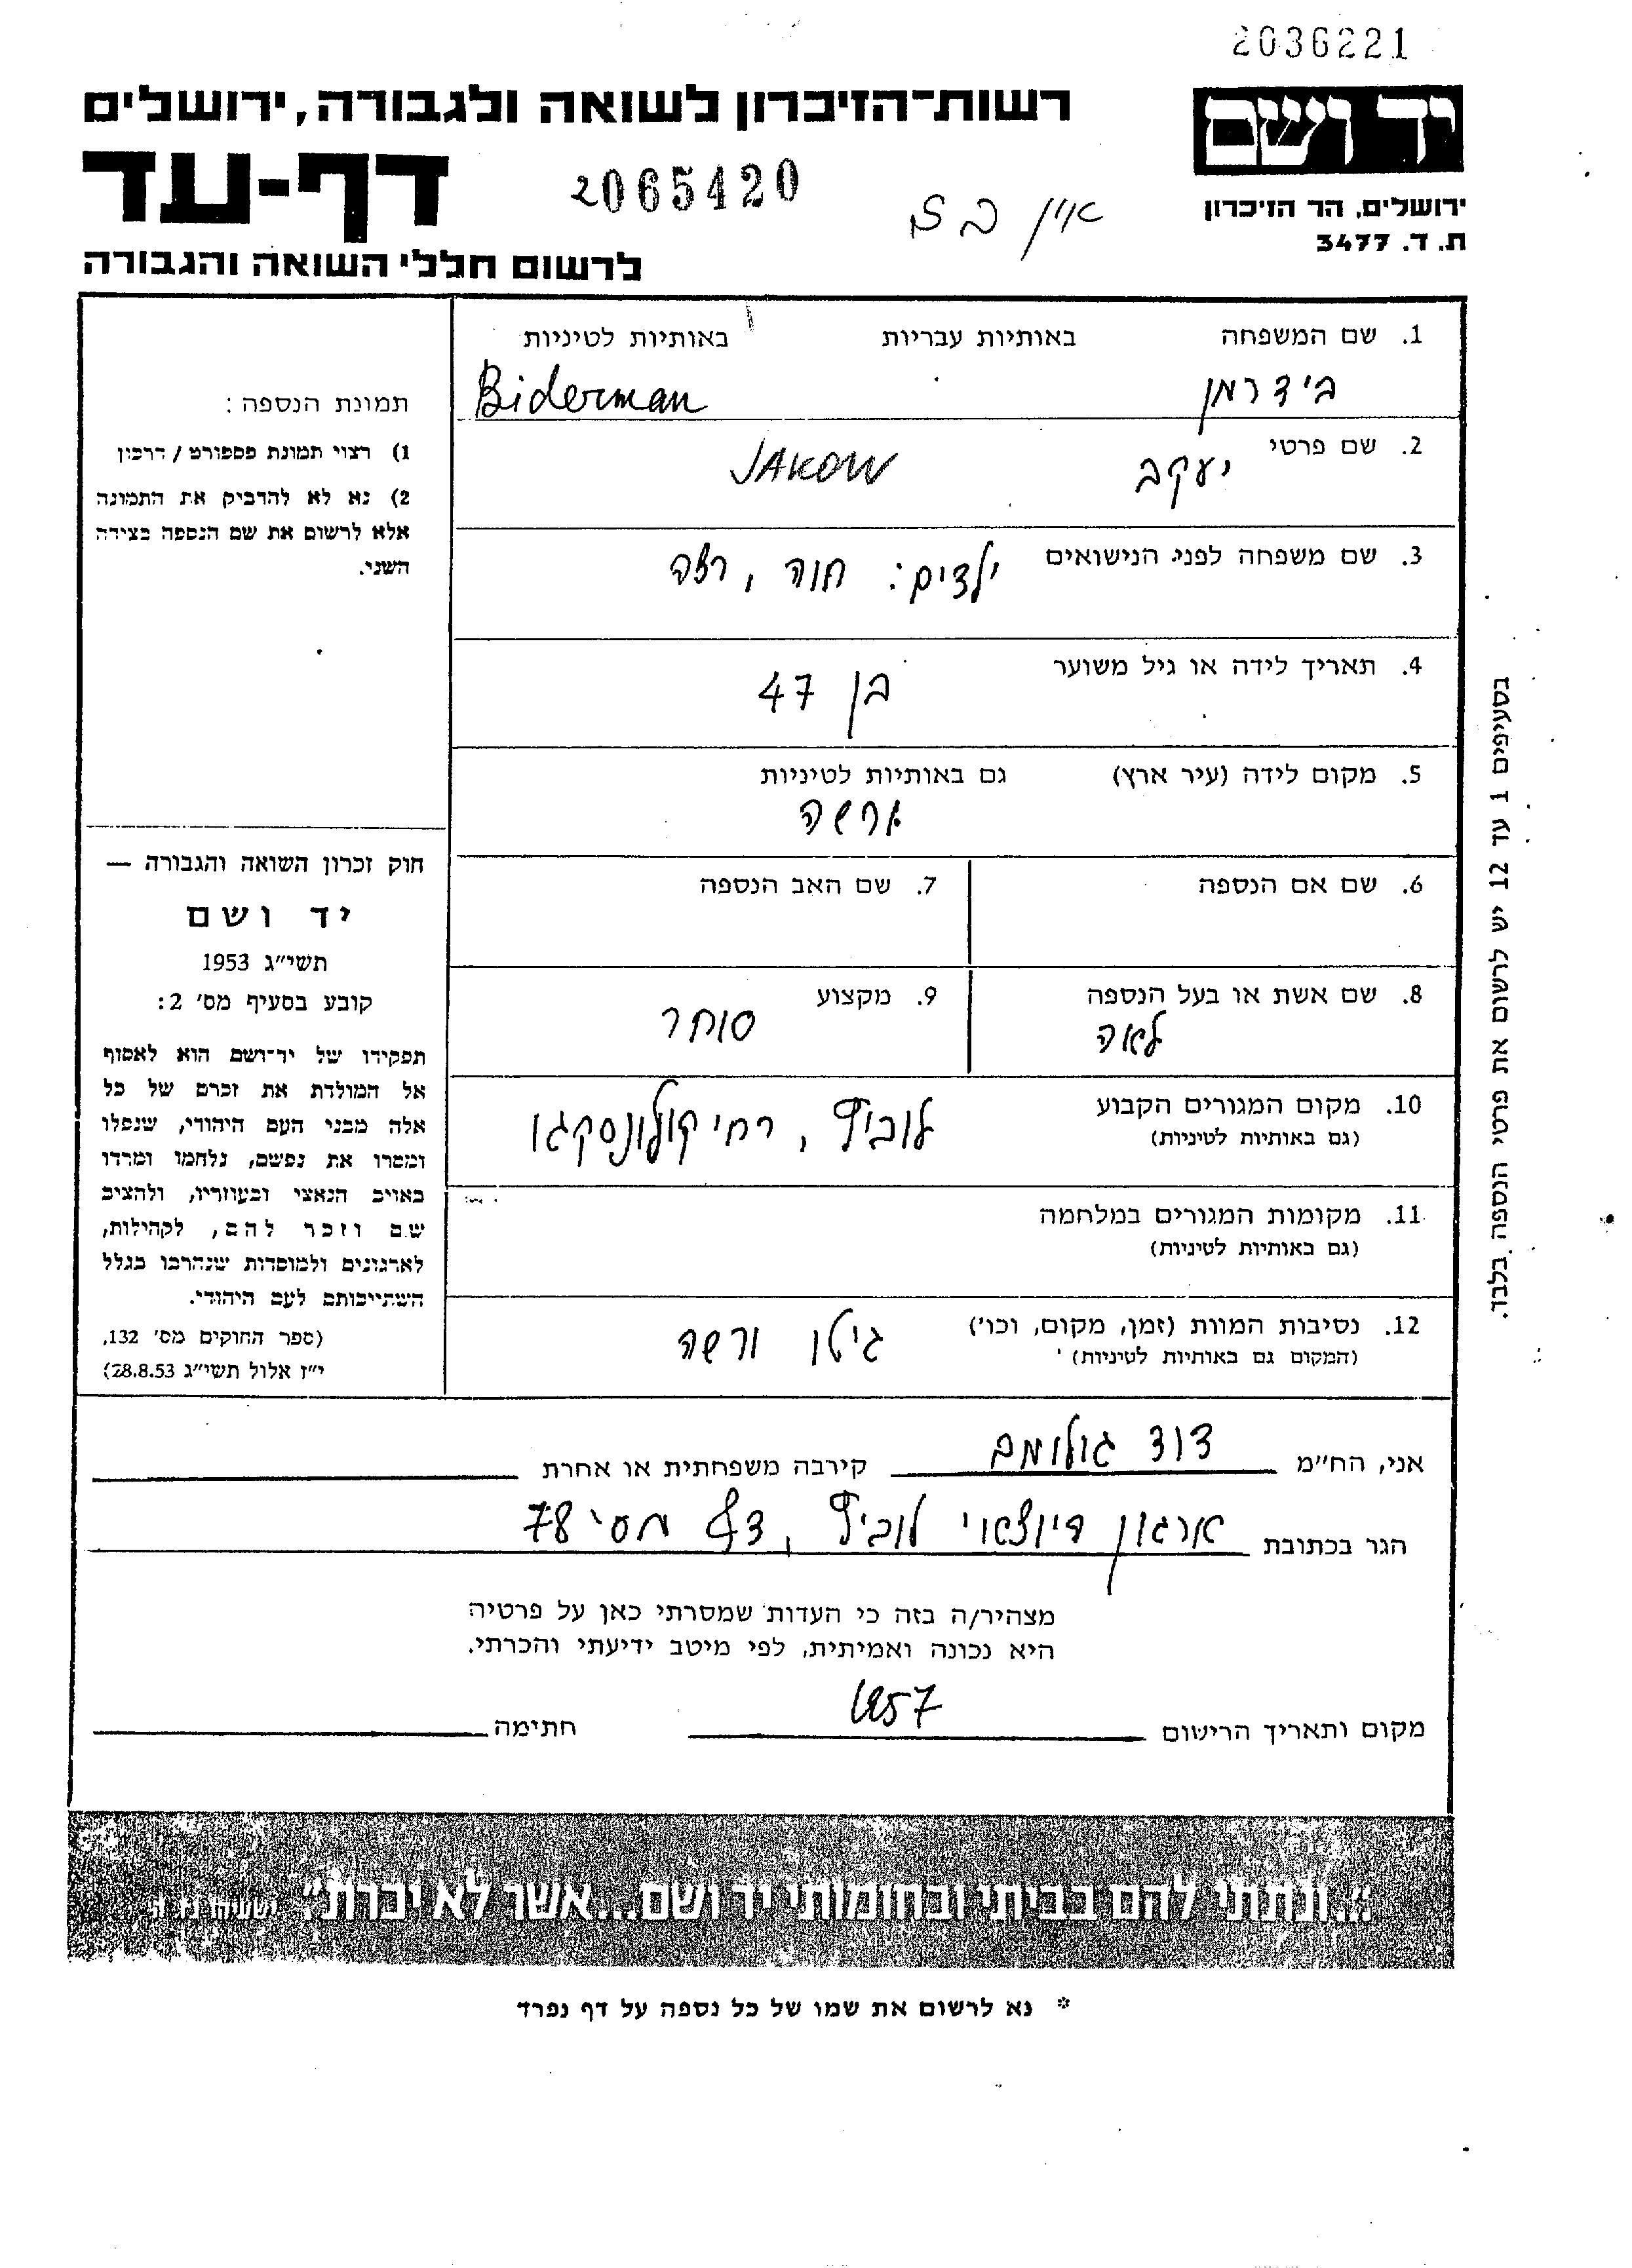 2036221
יד ושם
רשות־הזיכרון לשואה ולגבורה, ירושלים
דף-עד
2065420
ירושלים, הר הזיכרון
ת. ד. 3477
לרשום חללי השואה והגבורה
1. שם המשפחה באותיות עבריות באותיות לטיניות
בידרמן Biderman
2. שם פרטי יעקב JAKOW
3. שם משפחה לפני הנישואים ילדים: חוה, רצה
4. תאריך לידה או גיל משוער
בן 47
5. מקום לידה (עיר ארץ) גם באותיות לטיניות
ורשה
6. שם אם הנספה
7. שם האב הנספה
8. שם אשת או בעל הנספה
לאה
9. מקצוע
סוחר
10. מקום המגורים הקבוע
(גם באותיות לטיניות)
לוביץ, רח׳ קולונסקגו
11. מקומות המגורים במלחמה
(גם באותיות לטיניות)
12. נסיבות המוות (זמן, מקום, וכו׳)
(המקום גם באותיות לטיניות)
גיטו ורשה
תמונת הנספה:
1) רצוי תמונת פספורט / דרכון
2) נא לא להדביק את התמונה
אלא לרשום את שם הנספה בצידה
השני.
חוק זכרון השואה והגבורה —
יד ושם
תשי״ג 1953
קובע בסעיף מס׳ 2:
תפקידו של יד־ושם הוא לאסוף
אל המולדת את זכרם של כל
אלה מבני העם היהודי, שנפלו
ומסרו את נפשם, נלחמו ומרדו
באויב הנאצי ובעוזריו, ולהציב
שם וזכר להם, לקהילות,
לארגונים ולמוסדות שנחרבו בגלל
השתייכותם לעם היהודי.
(ספר החוקים מס׳ 132,
י״ז אלול תשי״ג 28.8.53)
בסעיפים 1 עד 12 יש לרשום את פרטי הנספה בלבד.
אני, הח״מ דוד גולומב קירבה משפחתית או אחרת
הגר בכתובת ארגון דיוצאי לוביץ, דף מס׳ 78
מצהיר/ה בזה כי העדות שמסרתי כאן על פרטיה
היא נכונה ואמיתית, לפי מיטב ידיעתי והכרתי.
מקום ותאריך הרישום 1957 חתימה
״..ונתתי להם בביתי ובחומותי יד ושם...אשר לא יכרת״ ישעיהו נו ה
* נא לרשום את שמו של כל נספה על דף נפרד